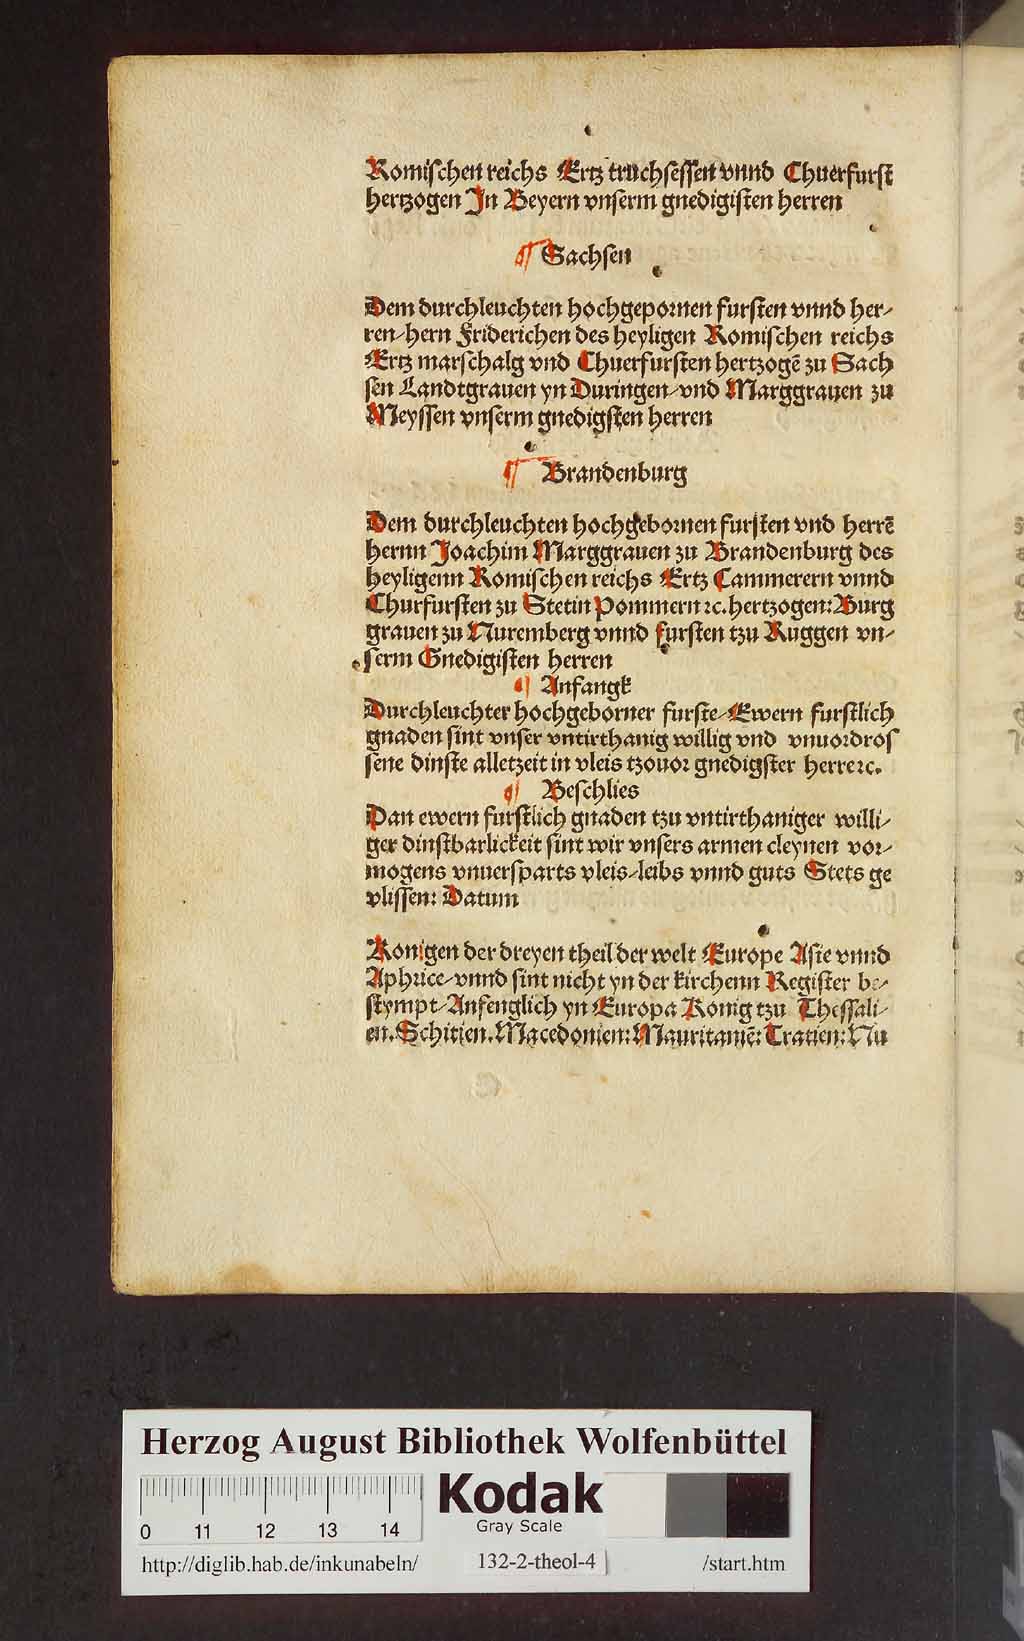 Romischen reichs Ertz truchsessen vnnd Chuerfurst
hertzogen Jn Beyern vnserm gnedigisten herren
¶ Sachsen
Dem durchleuchten hochgepornen fursten vnnd her-
ren/hern Friderichen des heyligen Romischen reichs
Ertz marschalg vnd Chuerfursten hertzogē zu Sach
sen Landtgrauen yn Duringen/vnd Marggrauen zu
Meyssen vnserm gnedigsten herren
¶ Brandenburg
Dem durchleuchten hochgebornen fursten vnd herrē
hernn Joachim Marggrauen zu Brandenburg des
heyligenn Romischen reichs Ertz Cammerern vnnd
Churfursten zu Stetin Pommern ꝛc. hertzogen: Burg
grauen zu Nuremberg vnnd fursten tzu Ruggen vn-
serm Gnedigisten herren
¶ Anfangk
Durchleuchter hochgeborner furste/Ewern furstlich
gnaden sint vnser vntirthanig willig vnd vnuordros
sene dinste alletzeit in vleis tzouor gnedigster herre ꝛc.
¶ Beschlies
Dan ewern furstlich gnaden tzu vntirthaniger willi-
ger dinstbarlickeit sint wir vnsers armen cleynen vor-
mogens vnuersparts vleis/leibs vnnd guts Stets ge
vlissen: Datum
Konigen der dreyen theil der welt Europe Asie vnnd
Aphrice/vnnd sint nicht yn der kirchenn Register be-
stympt/Anfenglich yn Europa Konig tzu Thessali-
en. Schitien. Macedonien: Mauritaniē: Tratien: Nu
Herzog August Bibliothek Wolfenbüttel
0 11 12 13 14
Kodak
Gray Scale
http://diglib.hab.de/inkunabeln/ 132-2-theol-4 /start.htm